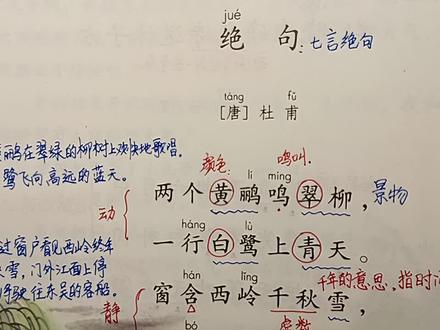 jué
绝句：七言绝句
táng fǔ
[唐] 杜甫
鹂在翠绿的柳树上欢快地歌唱，
鹭飞向高远的蓝天。
颜色：
鸣叫.
lí míng
两个黄鹂鸣翠柳，
景物
动
háng lù
一行白鹭上青天。
过窗户看见西岭
雪，门外江面上停
驶往东吴的客船。
千年的意思，指时
hán lǐng
窗含西岭千秋雪，
静
bó
虚数